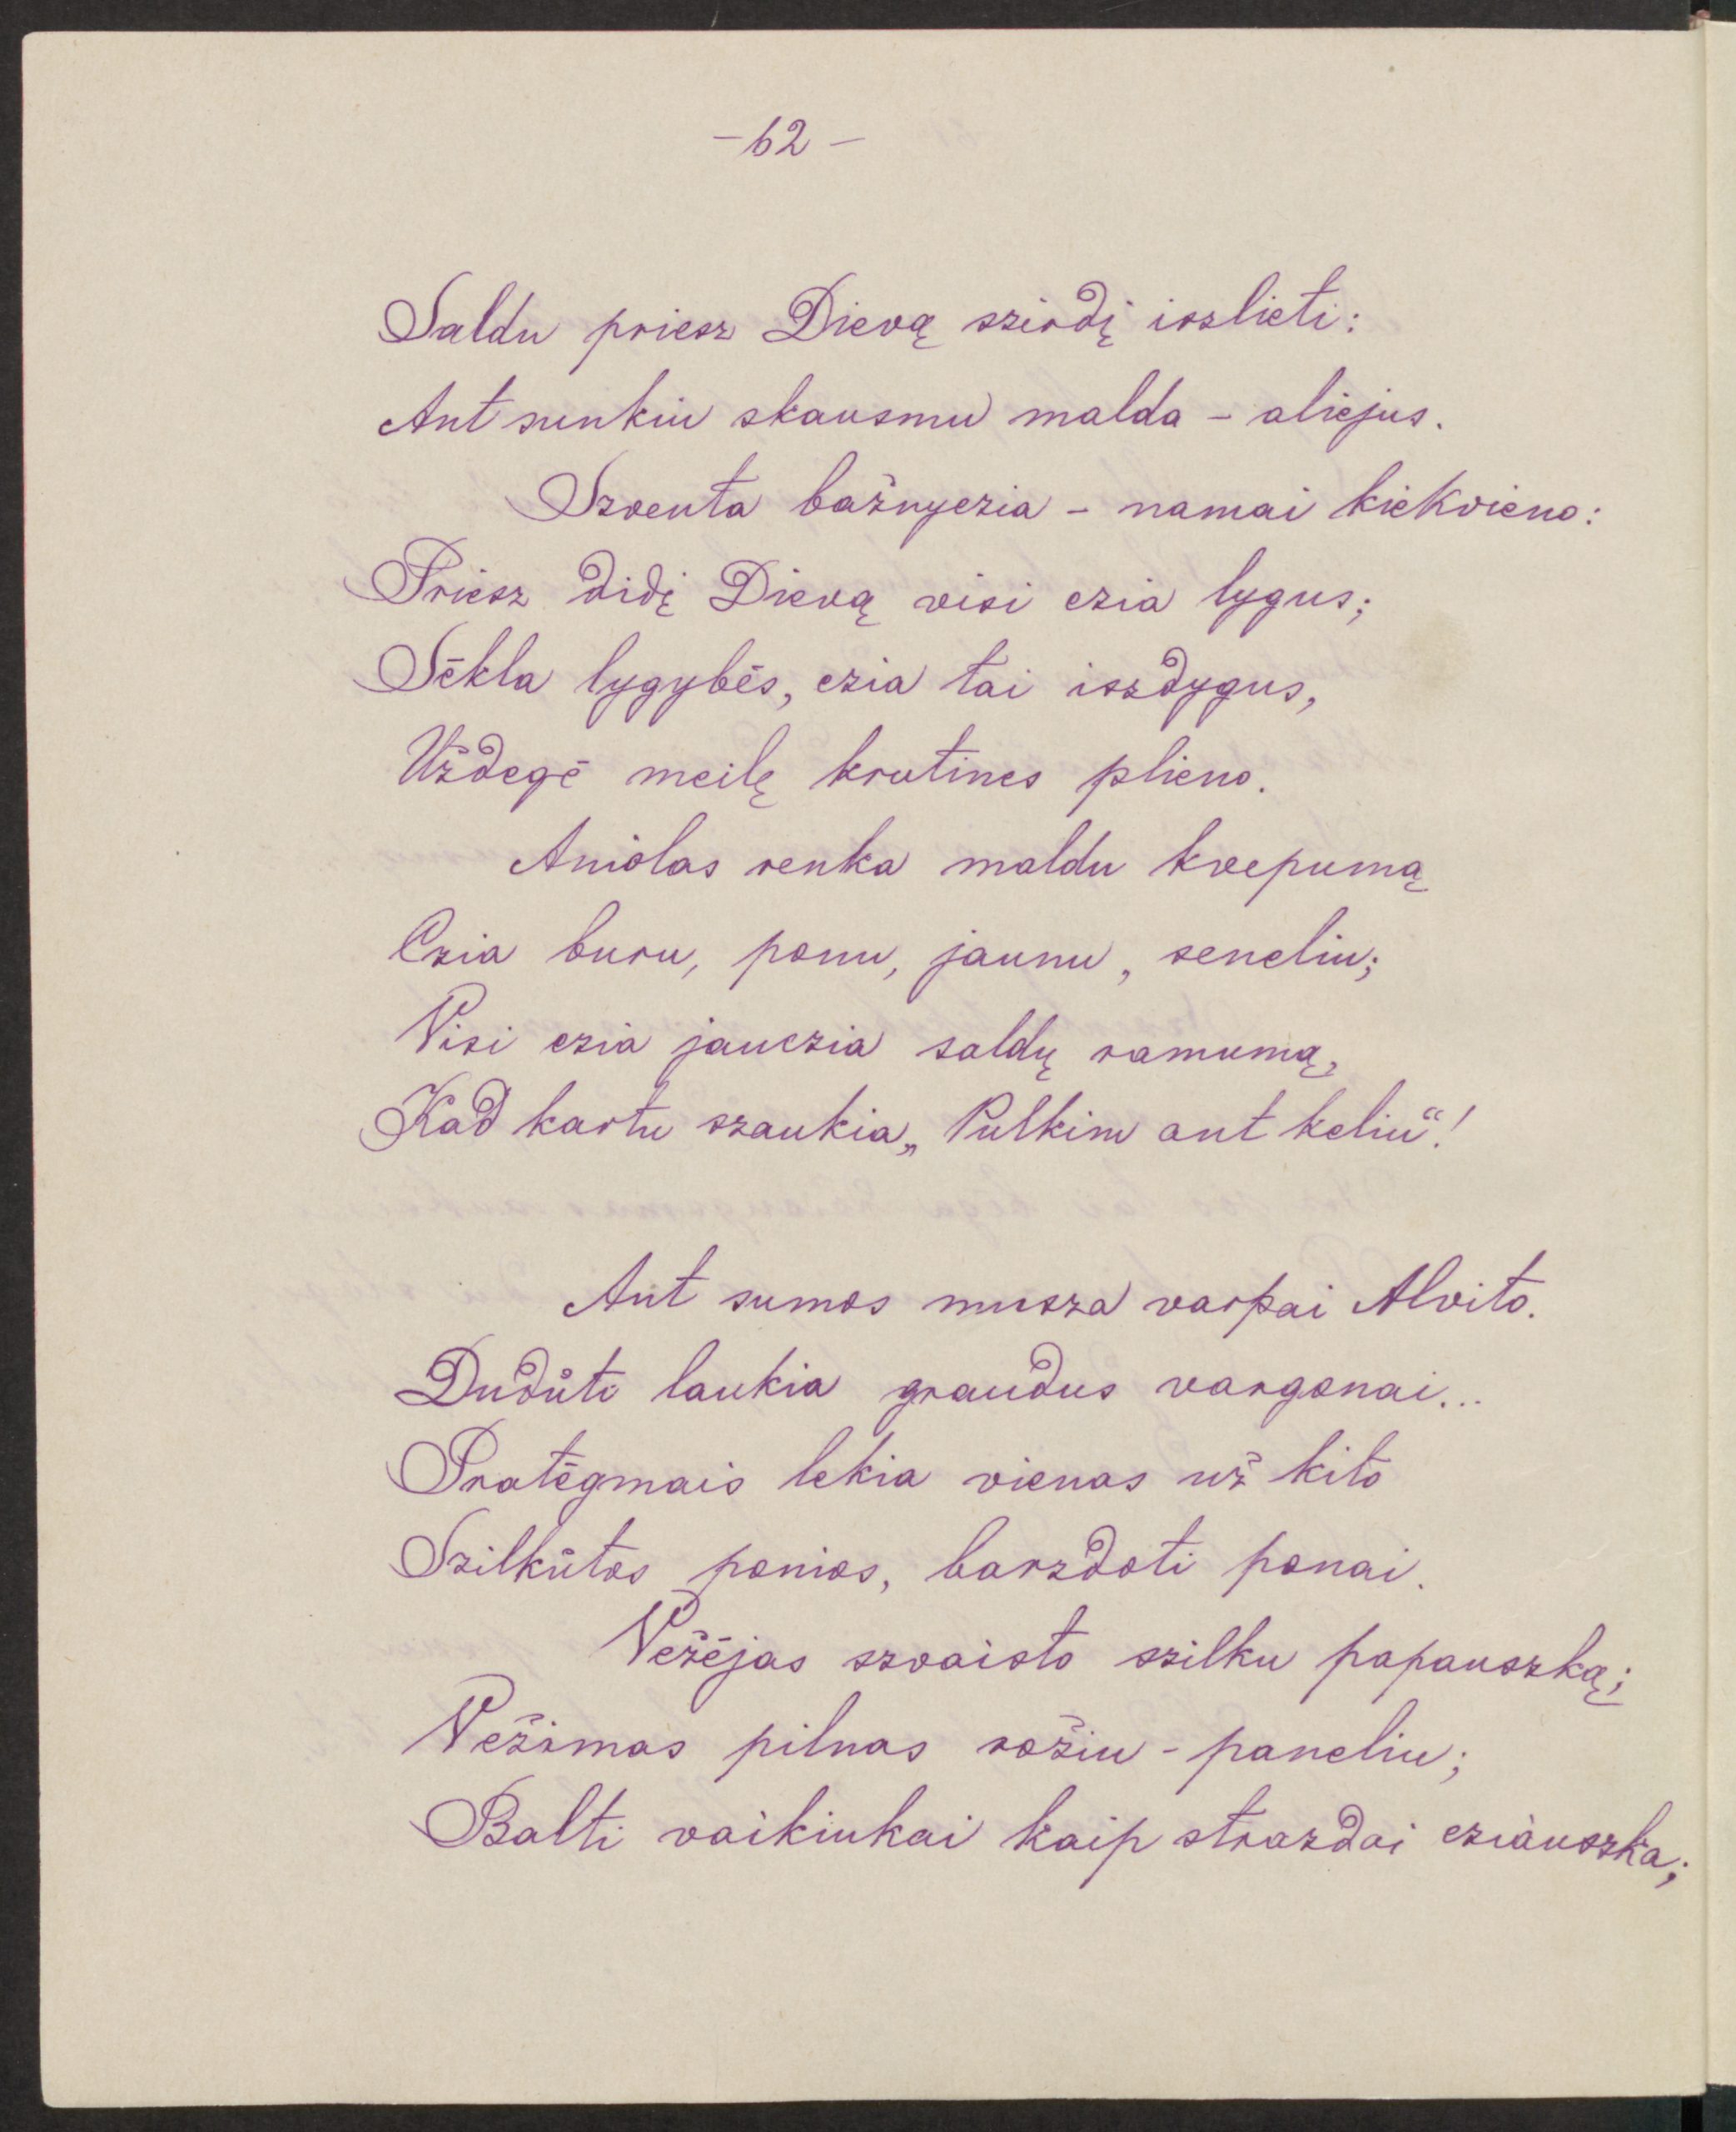 - 62 -
Saldu priesz Dievą szirdį iszlieti:
Ant sunkiu skausmu malda - aliejus.
Szventa bažnyczia - namai kiekvieno:
Priesz didį Dievą visi czia lygus;
Sēkla lygybēs, czia tai iszdygus,
Uždegē meilę krutines plieno.
Aniolas renka maldu kvepumą
Czia buru, ponu, jaunu, seneliu;
Visi czia jauczia saldų ramumą,
Kad kartu szaukia „Pulkim ant keliu“!
Ant sumos musza varpai Alvito.
Dudůti laukia graudus vargonai...
Pratēgmais lekia vienas už kito
Szilkůtos ponios, barzdoti ponai.
Vežējas szvaisto szilku papauszką;
Vežimas pilnas rožiu - paneliu;
Balti vaikiukai kaip strazdai cziauszka;